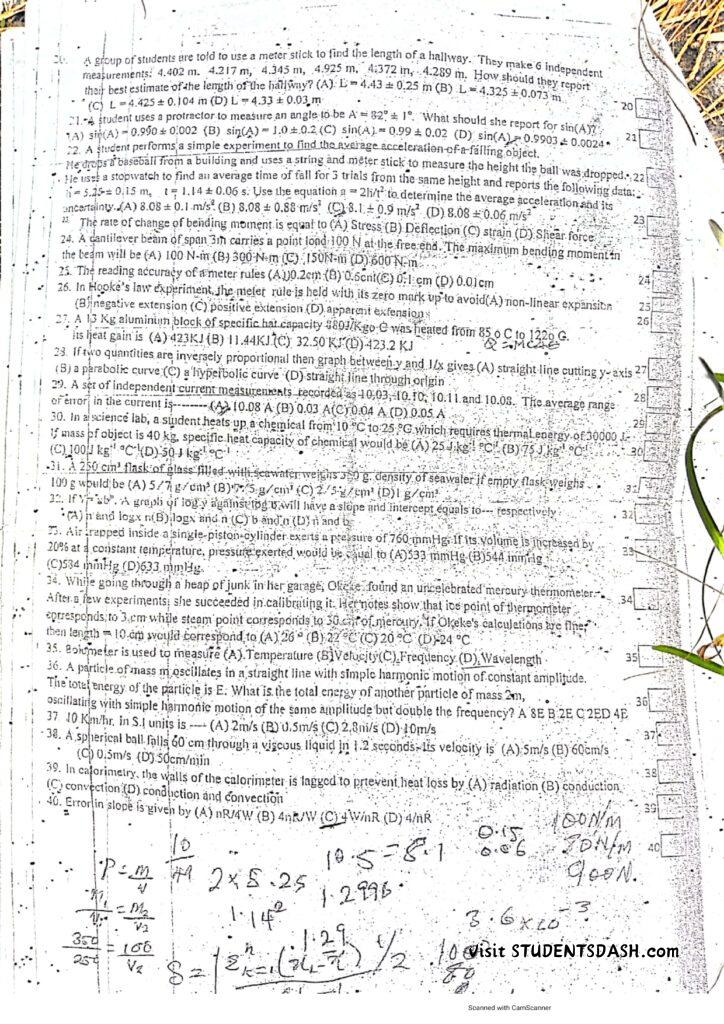 20. A group of students are told to use a meter stick to find the length of a hallway. They make 6 independent
measurements: 4.402 m, 4.217 m, 4.345 m, 4.925 m, 4.372 m, 4.289 m. How should they report
their best estimate of the length of the hallway? (A) L = 4.43 ± 0.25 m (B) L = 4.325 ± 0.073 m
(C) L = 4.425 ± 0.104 m (D) L = 4.33 ± 0.03 m
20
21. A student uses a protractor to measure an angle to be A = 82° ± 1°. What should she report for sin(A)?
(A) sin(A) = 0.990 ± 0.002 (B) sin(A) = 1.0 ± 0.2 (C) sin(A) = 0.99 ± 0.02 (D) sin(A) = 0.9903 ± 0.0024
21
22. A student performs a simple experiment to find the average acceleration of a falling object.
He drops a baseball from a building and uses a string and meter stick to measure the height the ball was dropped.
22
He uses a stopwatch to find an average time of fall for 3 trials from the same height and reports the following data:
h = 5.25 ± 0.15 m, t = 1.14 ± 0.06 s. Use the equation a = 2h/t² to determine the average acceleration and its
uncertainty. (A) 8.08 ± 0.1 m/s² (B) 8.08 ± 0.88 m/s² (C) 8.1 ± 0.9 m/s² (D) 8.08 ± 0.06 m/s²
23
The rate of change of bending moment is equal to (A) Stress (B) Deflection (C) strain (D) Shear force
24. A cantilever beam of span 3m carries a point load 100 N at the free end. The maximum bending moment in
the beam will be (A) 100 N-m (B) 300 N-m (C) 150N-m (D) 600 N-m
24
25. The reading accuracy of a meter rules (A) 0.2cm (B) 0.5cm (C) 0.1 cm (D) 0.01cm
26. In Hooke's law experiment, the meter rule is held with its zero mark up to avoid(A) non-linear expansion
25
(B) negative extension (C) positive extension (D) apparent extension
26
27. A 13 Kg aluminium block of specific hat capacity 880J/Kgo C was heated from 85 o C to 122o C.
its heat gain is (A) 423KJ (B) 11.44KJ (C) 32.50 KJ (D) 423.2 KJ
28. If two quantities are inversely proportional then graph between y and 1/x gives (A) straight line cutting y-axis
27
(B) a parabolic curve (C) a hyperbolic curve (D) straight line through origin
29. A set of independent current measurements recorded as 10.03, 10.10, 10.11 and 10.08. The average range
28
of error in the current is-------- (A) 10.08 A (B) 0.03 A(C) 0.04 A (D) 0.05 A
30. In a science lab, a student heats up a chemical from 10 °C to 25 °C which requires thermal energy of 30000 J.
29
If mass of object is 40 kg, specific heat capacity of chemical would be (A) 25 J kg⁻¹ °C⁻¹ (B) 75 J kg⁻¹ °C⁻¹
30
(C) 100 J kg⁻¹ °C⁻¹ (D) 50 J kg⁻¹ °C⁻¹
31. A 250 cm³ flask of glass filled with seawater weighs 350 g. density of seawater if empty flask weighs
100 g would be (A) 5/7 g/cm³ (B) 7/5 g/cm³ (C) 2/5 g/cm³ (D)1 g/cm³
31
A graph of log y against log will have a slope and intercept equals to--- respectively
32
(A) n and logx (B) logx and n (C) b and n (D) n and b
33. Air trapped inside a single-piston-cylinder exerts a pressure of 760 mmHg. If its volume is increased by
20% at a constant temperature, pressure exerted would be equal to (A)533 mmHg (B)544 mmHg
33
(C)534 mmHg (D)633 mmHg.
34. While going through a heap of junk in her garage, Okeke found an uncelebrated mercury thermometer.
After a few experiments, she succeeded in calibrating it. Her notes show that ice point of thermometer
34
corresponds to 3 cm while steam point corresponds to 30 cm of mercury. If Okeke's calculations are fine,
then length = 10 cm would correspond to (A) 26 ° (B) 22 °C (C) 20 °C (D) 24 °C
35. Bolometer is used to measure (A) Temperature (B) Velocity(C) Frequency (D) Wavelength
35
36. A particle of mass m oscillates in a straight line with simple harmonic motion of constant amplitude.
The total energy of the particle is E. What is the total energy of another particle of mass 2m,
oscillating with simple harmonic motion of the same amplitude but double the frequency? A 8E B 2E C 2ED 4E
36
37 10 Km/hr. in S.I units is ---- (A) 2m/s (B) 0.5m/s (C) 2.8m/s (D) 10m/s
37
38. A spherical ball falls 60 cm through a viscous liquid in 1.2 seconds. Its velocity is (A) 5m/s (B) 60cm/s
(C) 0.5m/s (D) 50cm/min
38
39. In calorimetry, the walls of the calorimeter is lagged to prtevent heat loss by (A) radiation (B) conduction
(C) convection (D) conduction and convection
39
40. Error in slope is given by (A) nR/4W (B) 4nR/W (C) 4W/nR (D) 4/nR
40
100N/m
0.15
0.06
900N.
10.5 = 8.1
1.2996
2 x 5.25
1.14²
P = m/v
350/250 = 100/V₂
1.29
3.6 x 10⁻³
Visit STUDENTSDASH.com
Scanned with CamScanner